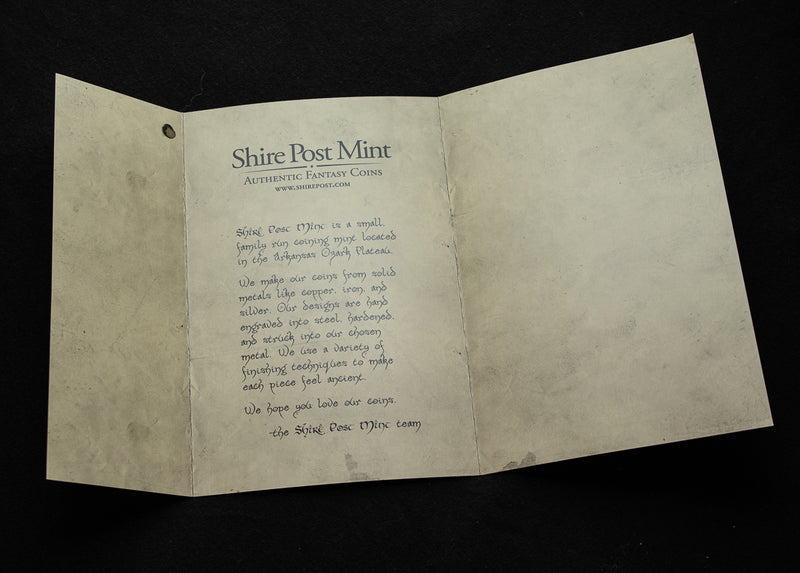 Shire Post Mint
Authentic Fantasy Coins
www.shirepost.com
Shire Post Mint is a small,
family run coining mint located
in the Arkansas Ozark Plateau.
We make our coins from solid
metals like copper, iron, and
silver. Our designs are hand
engraved into steel, hardened,
and struck into our chosen
metal. We use a variety of
finishing techniques to make
each piece feel ancient.
We hope you love our coins.
-the Shire Post Mint team